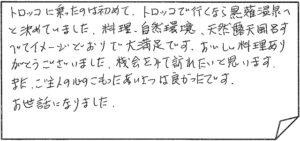 トロッコに乗ったのは初めて、トロッコで行くなら黒薙温泉へ
と決めていました。料理、自然環境、天然露天風呂す
べてイメージどおりで大満足です。おいしい料理あり
がとうございました。機会をみて訪れたいと思います。
また、ご主人の心のこもったあいさつは良かったです。
お世話になりました。